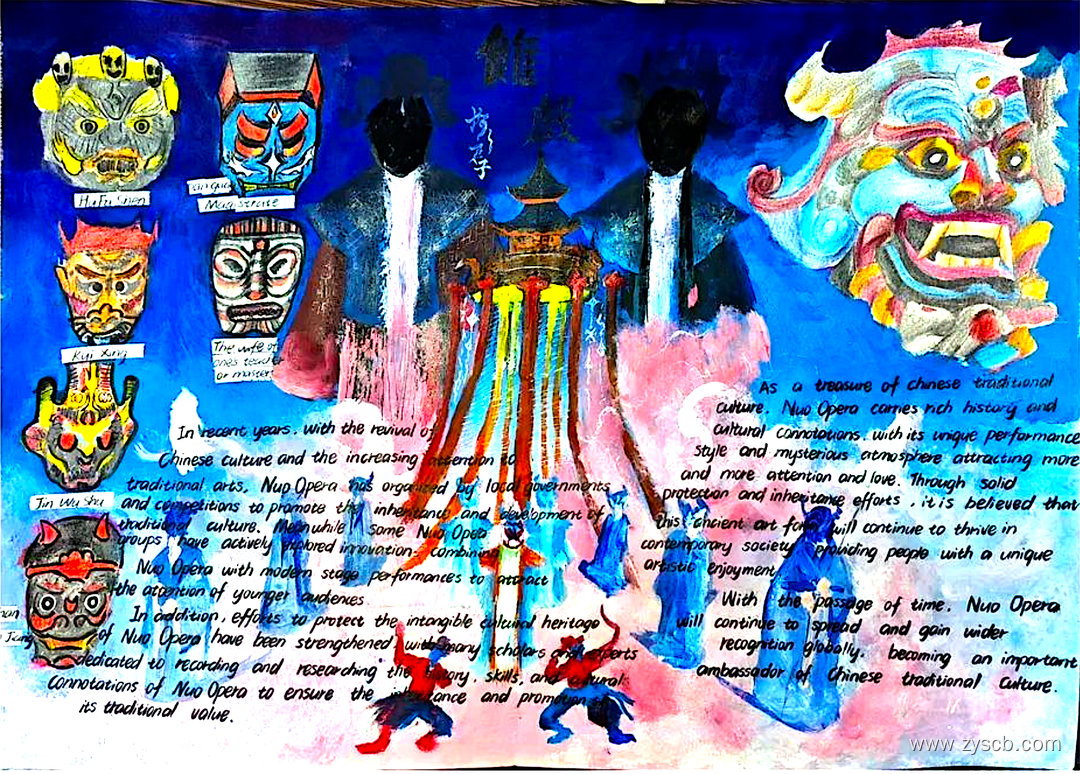 Hu Fa Shen
Magistrate
Kui Xing
The wife of
ones teacher
or master
Jin Wu Shu
In recent years. with the revival of
Chinese culture and the increasing attention to
traditional arts, Nuo Opera has organized by local governments
and competitions to promote the inheritance and development of
traditional culture. Meanwhile some Nuo Opera
groups have actively explored innovation. combining
Nuo Opera with modern stage performances to attract
the attention of younger audiences.
In addition, efforts to protect the intangible cultural heritage
of Nuo Opera have been strengthened, with many scholars and experts
dedicated to recording and researching the history, skills, and cultural
connotations of Nuo Opera to ensure the inheritance and promotion of
its traditional value.
As a treasure of chinese traditional
culture. Nuo Opera carries rich history and
cultural connotations. with its unique performance
style and mysterious atmosphere attracting more
and more attention and love. Through solid
protection and inheritance efforts, it is believed that
this ancient art form will continue to thrive in
contemporary society, providing people with a unique
artistic enjoyment.
With the passage of time. Nuo Opera
will continue to spread and gain wider
recognition globally. becoming an important
ambassador of Chinese traditional culture.
www.zyscb.com